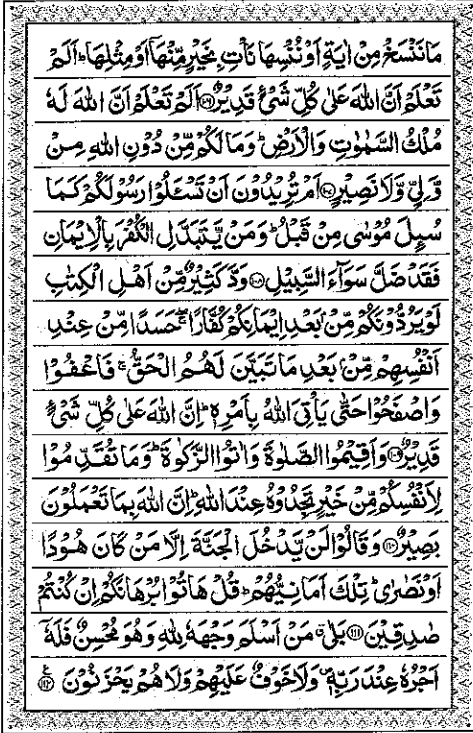 مَا نَنْسَخْ مِنْ اٰيَةٍ اَوْ نُنْسِهَا نَاْتِ بِخَيْرٍ مِّنْهَاۤ اَوْ مِثْلِهَا ؕ اَلَمْ
تَعْلَمْ اَنَّ اللّٰهَ عَلٰى كُلِّ شَىْءٍ قَدِيْرٌ ﴿۱۰۶﴾ اَلَمْ تَعْلَمْ اَنَّ اللّٰهَ لَهٗ
مُلْكُ السَّمٰوٰتِ وَالْاَرْضِ ؕ وَمَا لَكُمْ مِّنْ دُوْنِ اللّٰهِ مِنْ
وَّلِىٍّ وَّلَا نَصِيْرٍ ﴿۱۰۷﴾ اَمْ تُرِيْدُوْنَ اَنْ تَسْـَٔلُوْا رَسُوْلَكُمْ كَمَا
سُىِٕلَ مُوْسٰى مِنْ قَبْلُ ؕ وَمَنْ يَّتَبَدَّلِ الْكُفْرَ بِالْاِيْمَانِ
فَقَدْ ضَلَّ سَوَآءَ السَّبِيْلِ ﴿۱۰۸﴾ وَدَّ كَثِيْرٌ مِّنْ اَهْلِ الْكِتٰبِ
لَوْ يَرُدُّوْنَكُمْ مِّنْۢ بَعْدِ اِيْمَانِكُمْ كُفَّارًا ۖۚ حَسَدًا مِّنْ عِنْدِ
اَنْفُسِهِمْ مِّنْۢ بَعْدِ مَا تَبَيَّنَ لَهُمُ الْحَقُّ ۚ فَاعْفُوْا
وَاصْفَحُوْا حَتّٰى يَاْتِىَ اللّٰهُ بِاَمْرِهٖ ؕ اِنَّ اللّٰهَ عَلٰى كُلِّ شَىْءٍ
قَدِيْرٌ ﴿۱۰۹﴾ وَاَقِيْمُوا الصَّلٰوةَ وَاٰتُوا الزَّكٰوةَ ؕ وَمَا تُقَدِّمُوْا
لِاَنْفُسِكُمْ مِّنْ خَيْرٍ تَجِدُوْهُ عِنْدَ اللّٰهِ ؕ اِنَّ اللّٰهَ بِمَا تَعْمَلُوْنَ
بَصِيْرٌ ﴿۱۱۰﴾ وَقَالُوْا لَنْ يَّدْخُلَ الْجَنَّةَ اِلَّا مَنْ كَانَ هُوْدًا
اَوْ نَصٰرٰى ؕ تِلْكَ اَمَانِيُّهُمْ ؕ قُلْ هَاتُوْا بُرْهَانَكُمْ اِنْ كُنْتُمْ
صٰدِقِيْنَ ﴿۱۱۱﴾ بَلٰى ۗ مَنْ اَسْلَمَ وَجْهَهٗ لِلّٰهِ وَهُوَ مُحْسِنٌ فَلَهٗۤ
اَجْرُهٗ عِنْدَ رَبِّهٖ ۪ وَلَا خَوْفٌ عَلَيْهِمْ وَلَا هُمْ يَحْزَنُوْنَ ﴿۱۱۲﴾